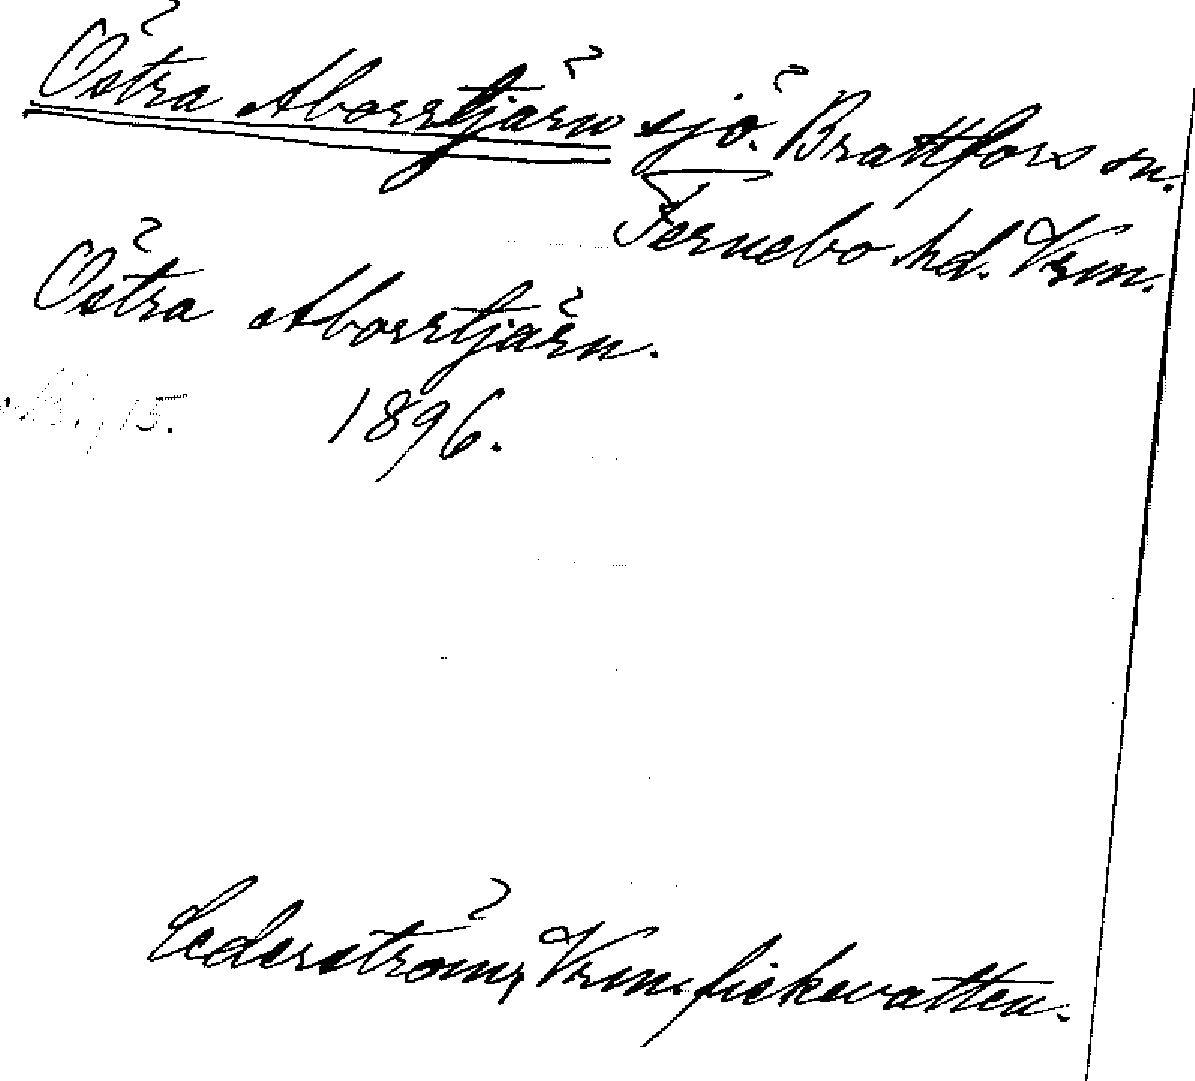 Östra Aborrtjärn sjö. Brattfors sn.
Fernebo hd. Vrm.
Östra Aborrtjärn.
15. 1896.
Cederström, Vrm. fiskevatten.